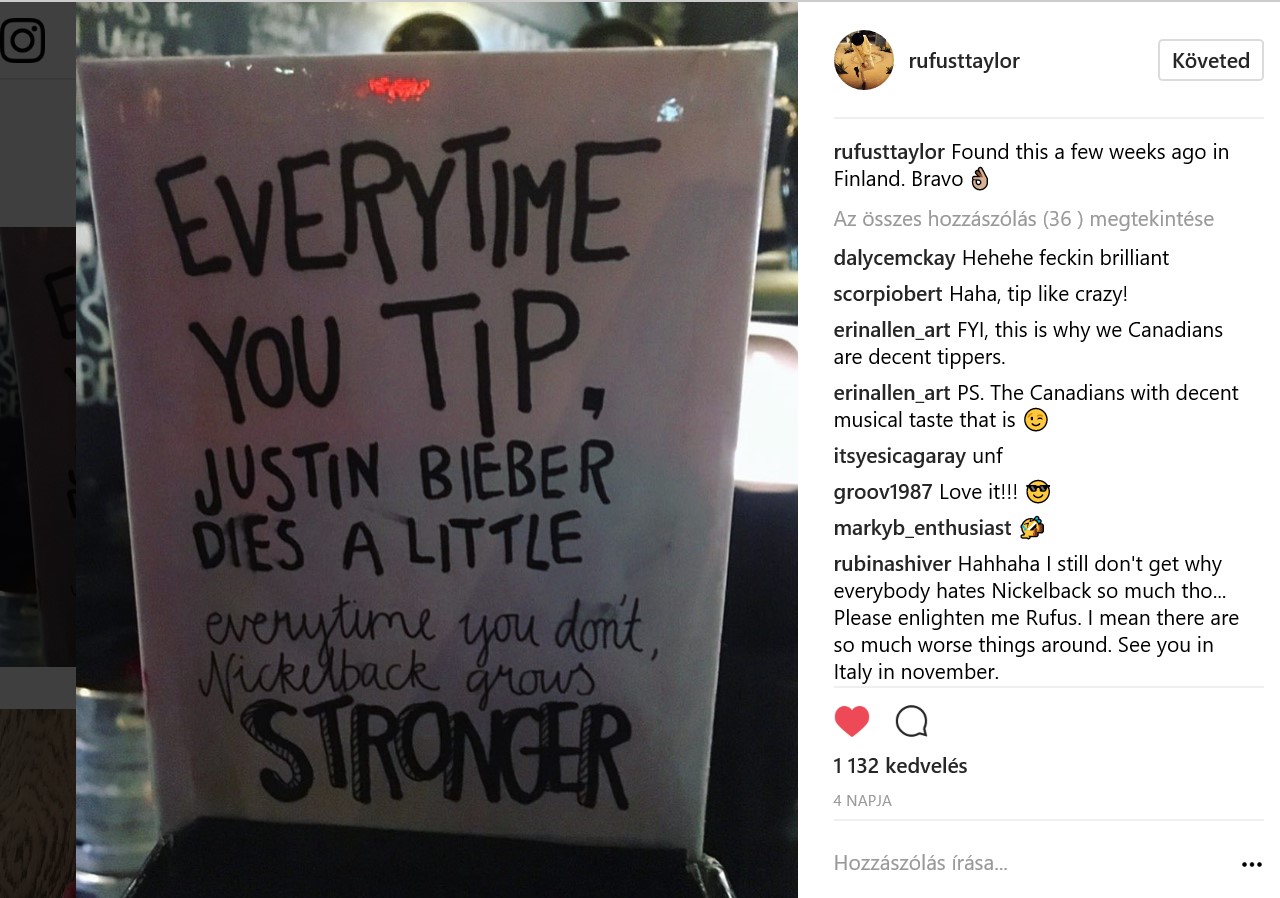 EVERYTIME
YOU TIP,
JUSTIN BIEBER
DIES A LITTLE
everytime you don't,
Nickelback grows
STRONGER
rufusttaylor
Követed
rufusttaylor Found this a few weeks ago in
Finland. Bravo 👌🏽
Az összes hozzászólás (36 ) megtekintése
dalycemckay Hehehe feckin brilliant
scorpiobert Haha, tip like crazy!
erinallen_art FYI, this is why we Canadians
are decent tippers.
erinallen_art PS. The Canadians with decent
musical taste that is 😉
itsyesicagaray unf
groov1987 Love it!!! 😎
markyb_enthusiast 🤣
rubinashiver Hahhaha I still don't get why
everybody hates Nickelback so much tho...
Please enlighten me Rufus. I mean there are
so much worse things around. See you in
Italy in november.
1 132 kedvelés
4 NAPJA
Hozzászólás írása...